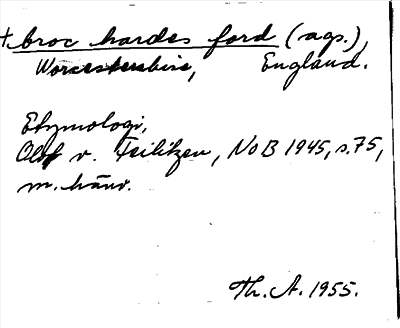 + broc hardes ford (ags.),
Worcestershire, England.
Etymologi,
Olof v. Feilitzen, NoB 1945, s. 75,
m. hänv.
Th. A. 1955.